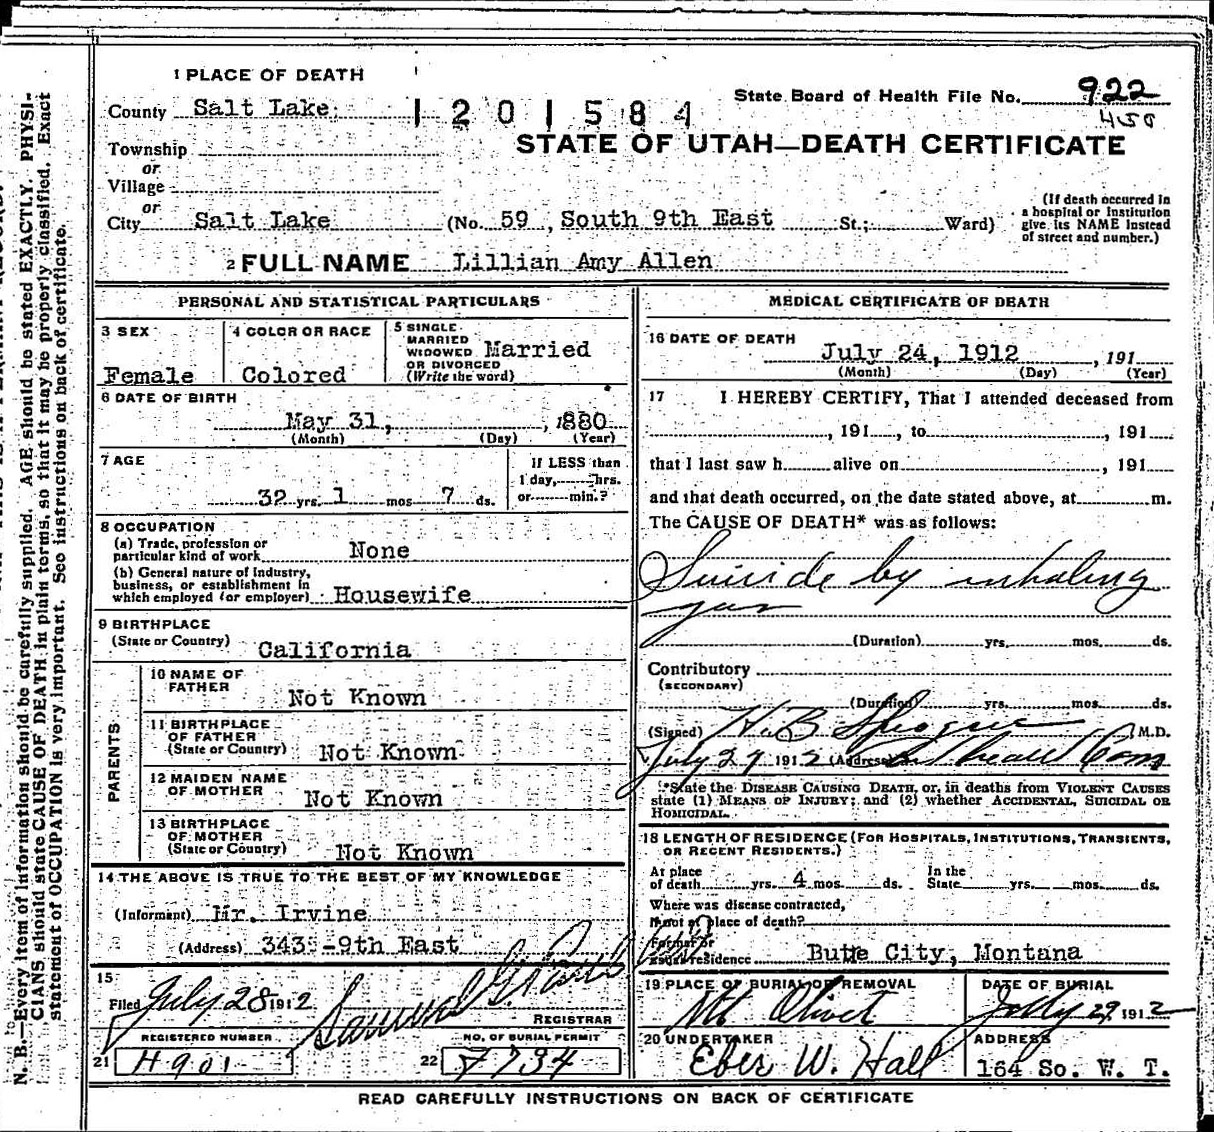 1 PLACE OF DEATH
County Salt Lake. 1201584
State Board of Health File No. 922
450
Township
or
Village
or
STATE OF UTAH—DEATH CERTIFICATE
City Salt Lake (No. 59, South 9th East St.; Ward)
(If death occurred in a hospital or institution give its NAME instead of street and number.)
2 FULL NAME Lillian Amy Allen
PERSONAL AND STATISTICAL PARTICULARS
3 SEX
Female
4 COLOR OR RACE
Colored
5 SINGLE
MARRIED
WIDOWED
OR DIVORCED
(Write the word)
Married
6 DATE OF BIRTH
May 31, , 1880
(Month) (Day) (Year)
7 AGE
32 yrs. 1 mos 7 ds.
If LESS than
1 day, hrs.
or min.?
8 OCCUPATION
(a) Trade, profession or
particular kind of work None
(b) General nature of Industry,
business, or establishment in
which employed (or employer) Housewife
9 BIRTHPLACE
(State or Country) California
PARENTS
10 NAME OF
FATHER Not Known
11 BIRTHPLACE
OF FATHER
(State or Country) Not Known
12 MAIDEN NAME
OF MOTHER Not Known
13 BIRTHPLACE
OF MOTHER
(State or Country) Not Known
14 THE ABOVE IS TRUE TO THE BEST OF MY KNOWLEDGE
(Informant) Mr. Irvine
(Address) 343 -9th East
15
Filed July 28 1912 Samuel G.
REGISTRAR
REGISTERED NUMBER
21 H901
NO. OF BURIAL PERMIT
22 F734
MEDICAL CERTIFICATE OF DEATH
16 DATE OF DEATH
July 24, 1912 , 191
(Month) (Day) (Year)
17 I HEREBY CERTIFY, That I attended deceased from
, 191 , to , 191
that I last saw h alive on , 191
and that death occurred, on the date stated above, at m.
The CAUSE OF DEATH* was as follows:
Suicide by inhaling
gas
(Duration) yrs. mos. ds.
Contributory
(SECONDARY)
(Duration) yrs. mos. ds.
(Signed) H. B. Sprague , M.D.
July 27 1912 (Address) Health Com
*State the DISEASE CAUSING DEATH, or, in deaths from VIOLENT CAUSES
state (1) MEANS OF INJURY; and (2) whether ACCIDENTAL, SUICIDAL OR
HOMICIDAL.
18 LENGTH OF RESIDENCE (FOR HOSPITALS, INSTITUTIONS, TRANSIENTS,
OR RECENT RESIDENTS.)
At place
of death yrs. 4 mos. ds.
In the
State yrs. mos. ds.
Where was disease contracted,
if not at place of death?
Former or
usual residence Butte City, Montana
19 PLACE OF BURIAL OR REMOVAL
Mt Olivet
DATE OF BURIAL
July 29, 1912
20 UNDERTAKER
Eber W. Hall
ADDRESS
164 So. W. T.
READ CAREFULLY INSTRUCTIONS ON BACK OF CERTIFICATE
N. B.—Every item of information should be carefully supplied. AGE should be stated EXACTLY. PHYSI-
CIANS should state CAUSE OF DEATH in plain terms, so that it may be properly classified. Exact
statement of OCCUPATION is very important. See instructions on back of certificate.